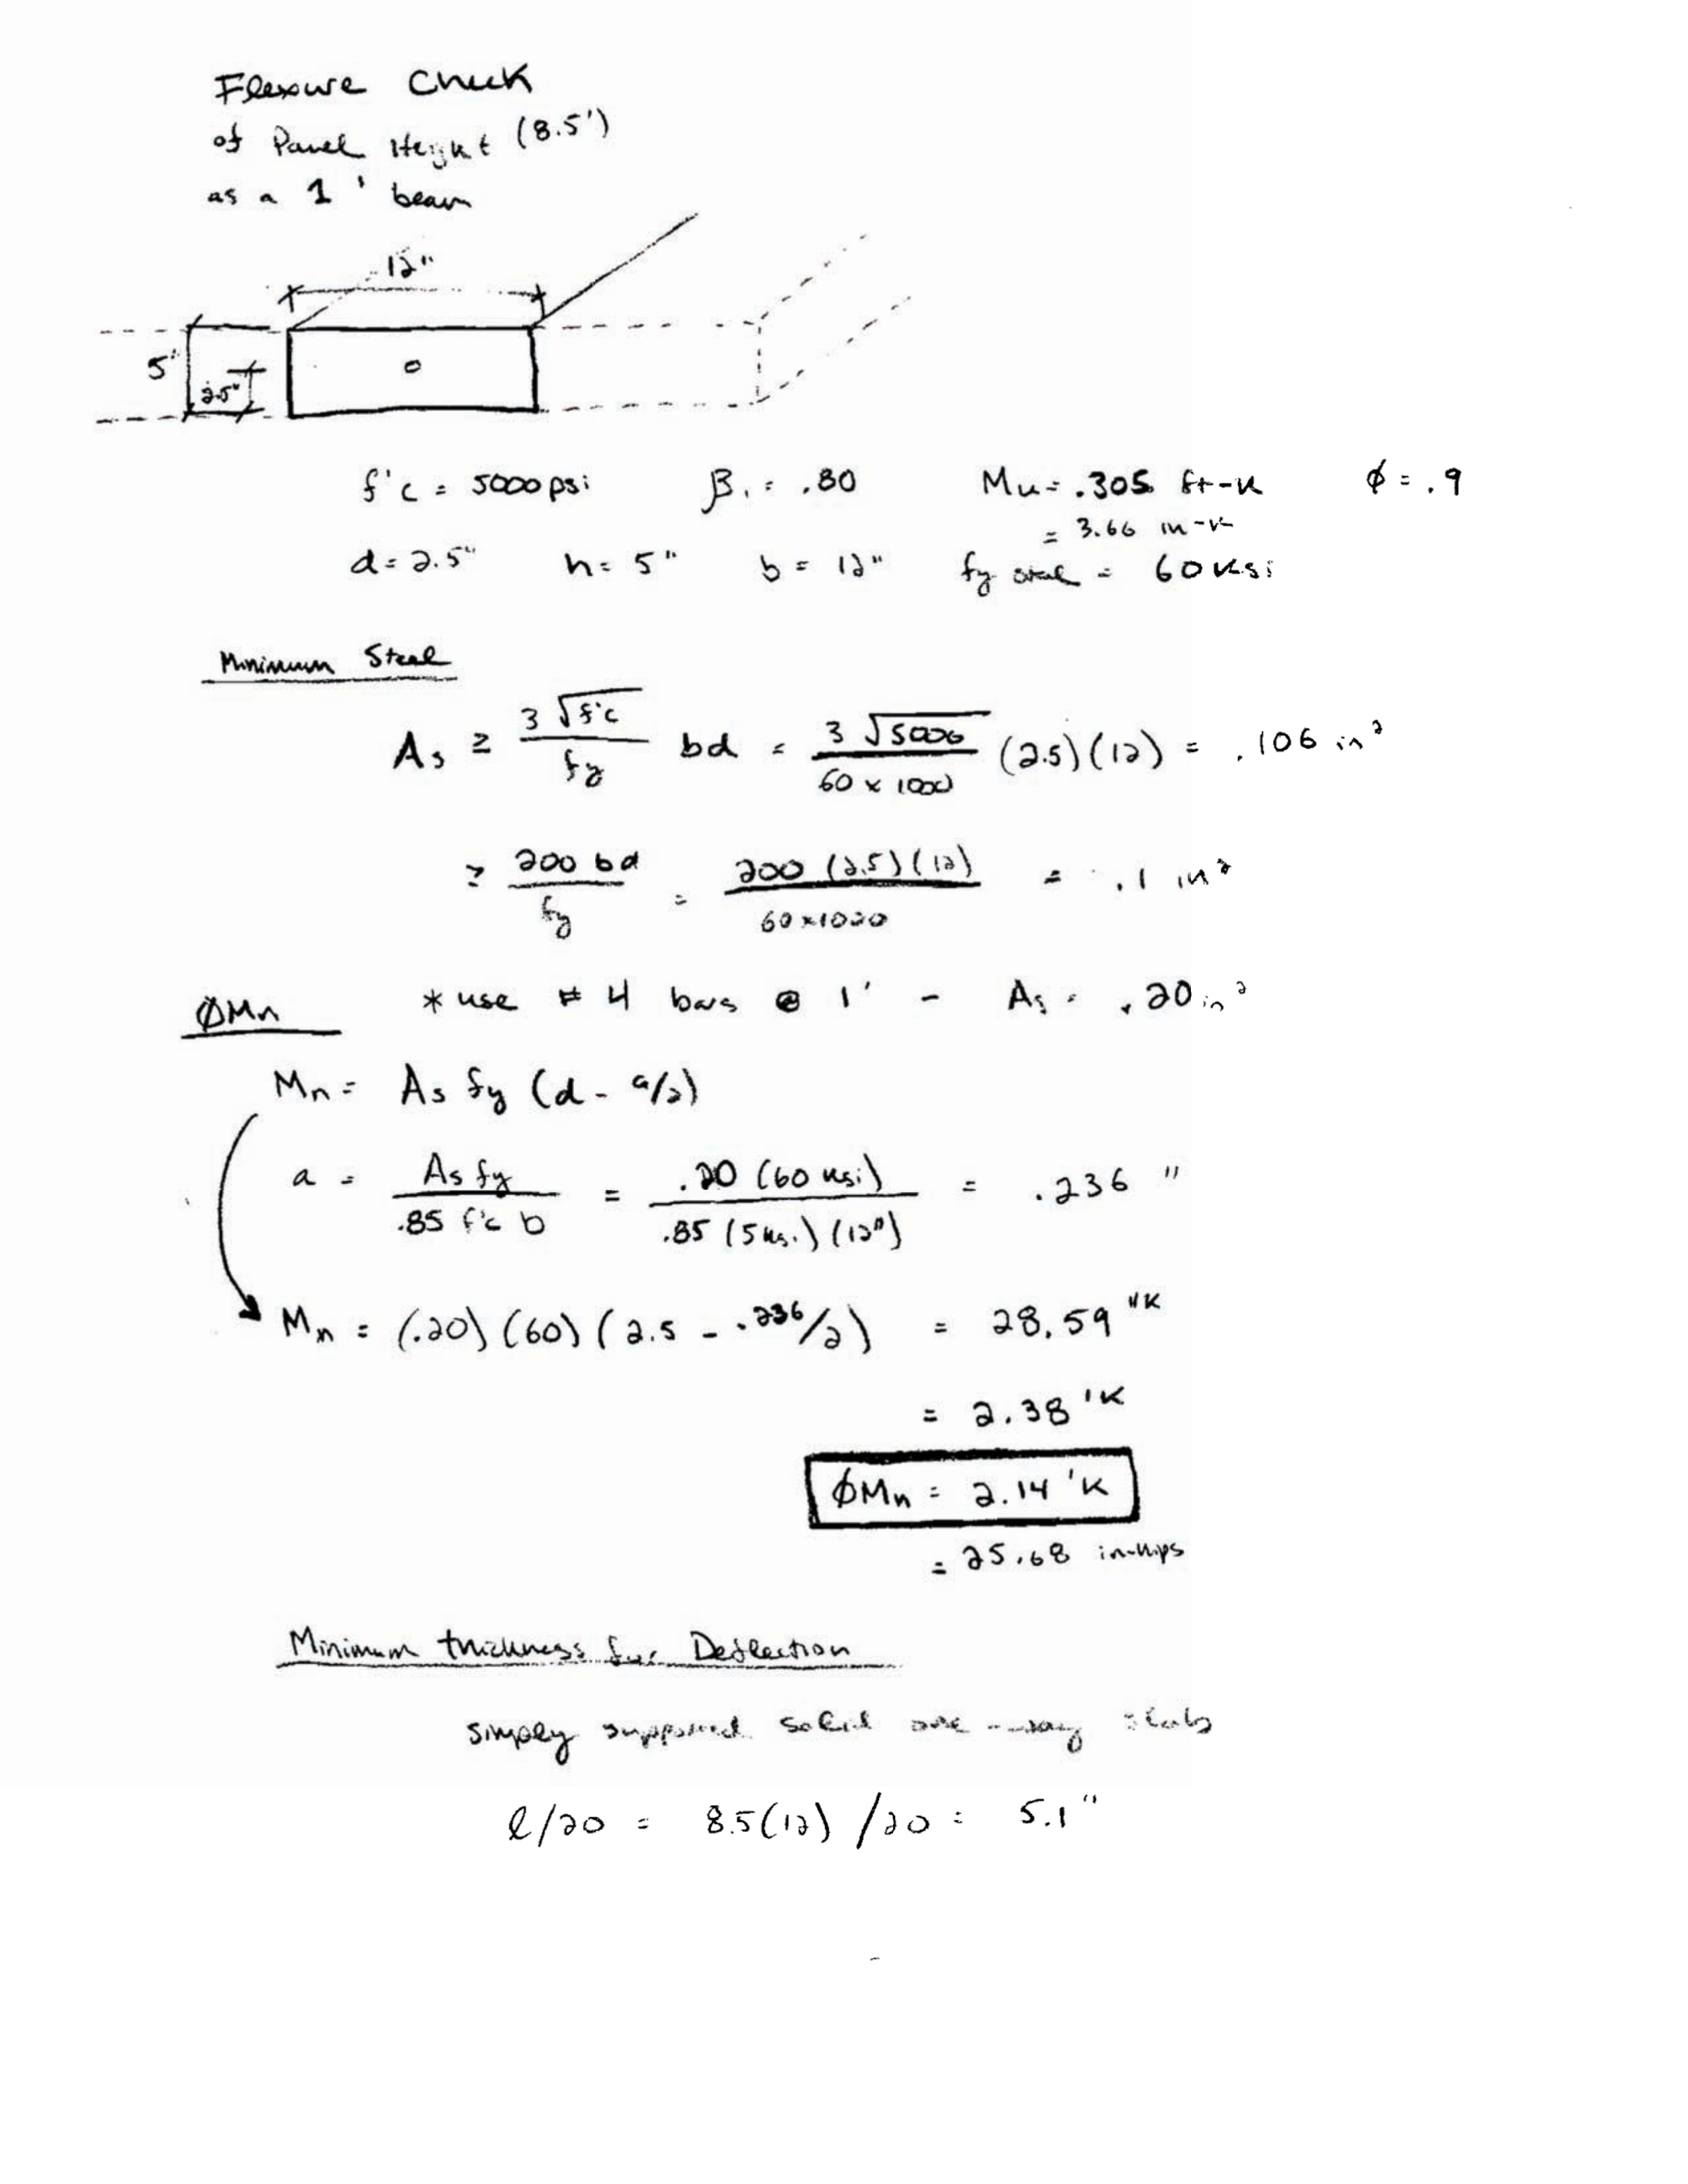 Flexure Check
of Panel Height (8.5')
as a 1' beam
12"
5"
2.5"
f'c = 5000 psi β₁ = .80 Mu = .305 ft-k ϕ = .9
= 3.66 in-k
d = 2.5" h = 5" b = 12" fy steel = 60 ksi
Minimum Steel
As ≥ 3 √f'c / fy bd = 3 √5000 / 60 x 1000 (2.5)(12) = .106 in²
≥ 200 bd / fy = 200 (2.5)(12) / 60x1000 = .1 in²
ϕMn * use # 4 bars @ 1' - As = .20 in²
Mn = As fy (d - a/2)
a = As fy / .85 f'c b = .20 (60 ksi) / .85 (5 ksi) (12") = .236 "
Mn = (.20) (60) (2.5 - .236/2) = 28.59 "K
= 2.38 'K
ϕMn = 2.14 'K
= 25.68 in-kips
Minimum thickness for Deflection
simply supported solid one-way slab
l/20 = 8.5(12) /20 = 5.1"